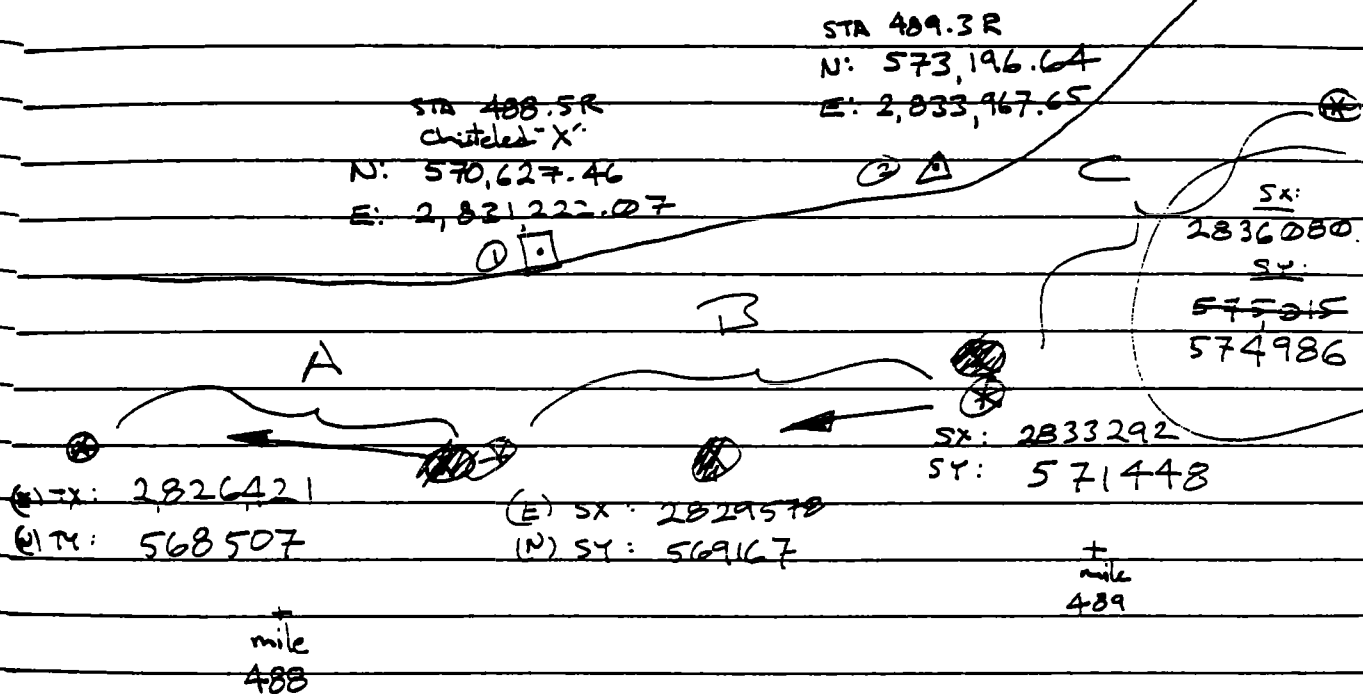 STA 489.3R
N: 573,196.64
E: 2,833,967.65
STA 488.5R
Chisteled "X"
N: 570,627.46
E: 2,831,222.07
② 
C
①
SX:
2836080.
SY:
575215
574986
B
A
SX: 2833292
SY: 571448
TX: 2826421
(N) TY: 568507
(E) SX: 2829578
(N) SY: 569167
+
mile
489
+
mile
488